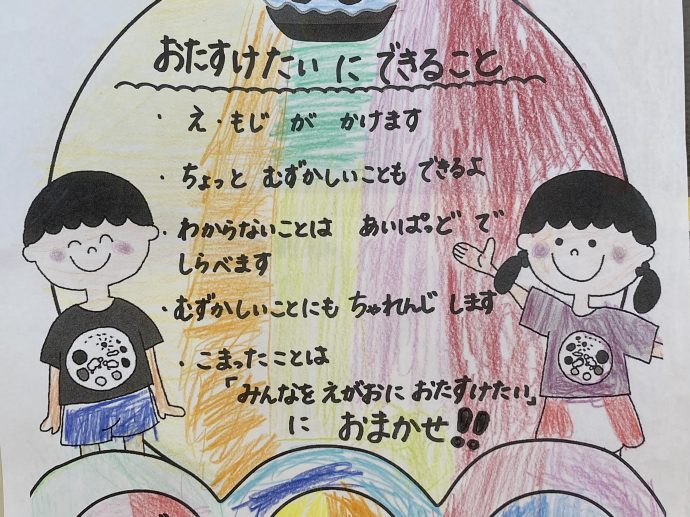 おたすけたいにできること
・え・もじがかけます
・ちょっとむずかしいこともできるよ
・わからないことはあいぱっどで
しらべます
・むずかしいことにもちゃれんじします
・こまったことは
「みんなをえがおにおたすけたい」
におまかせ!!